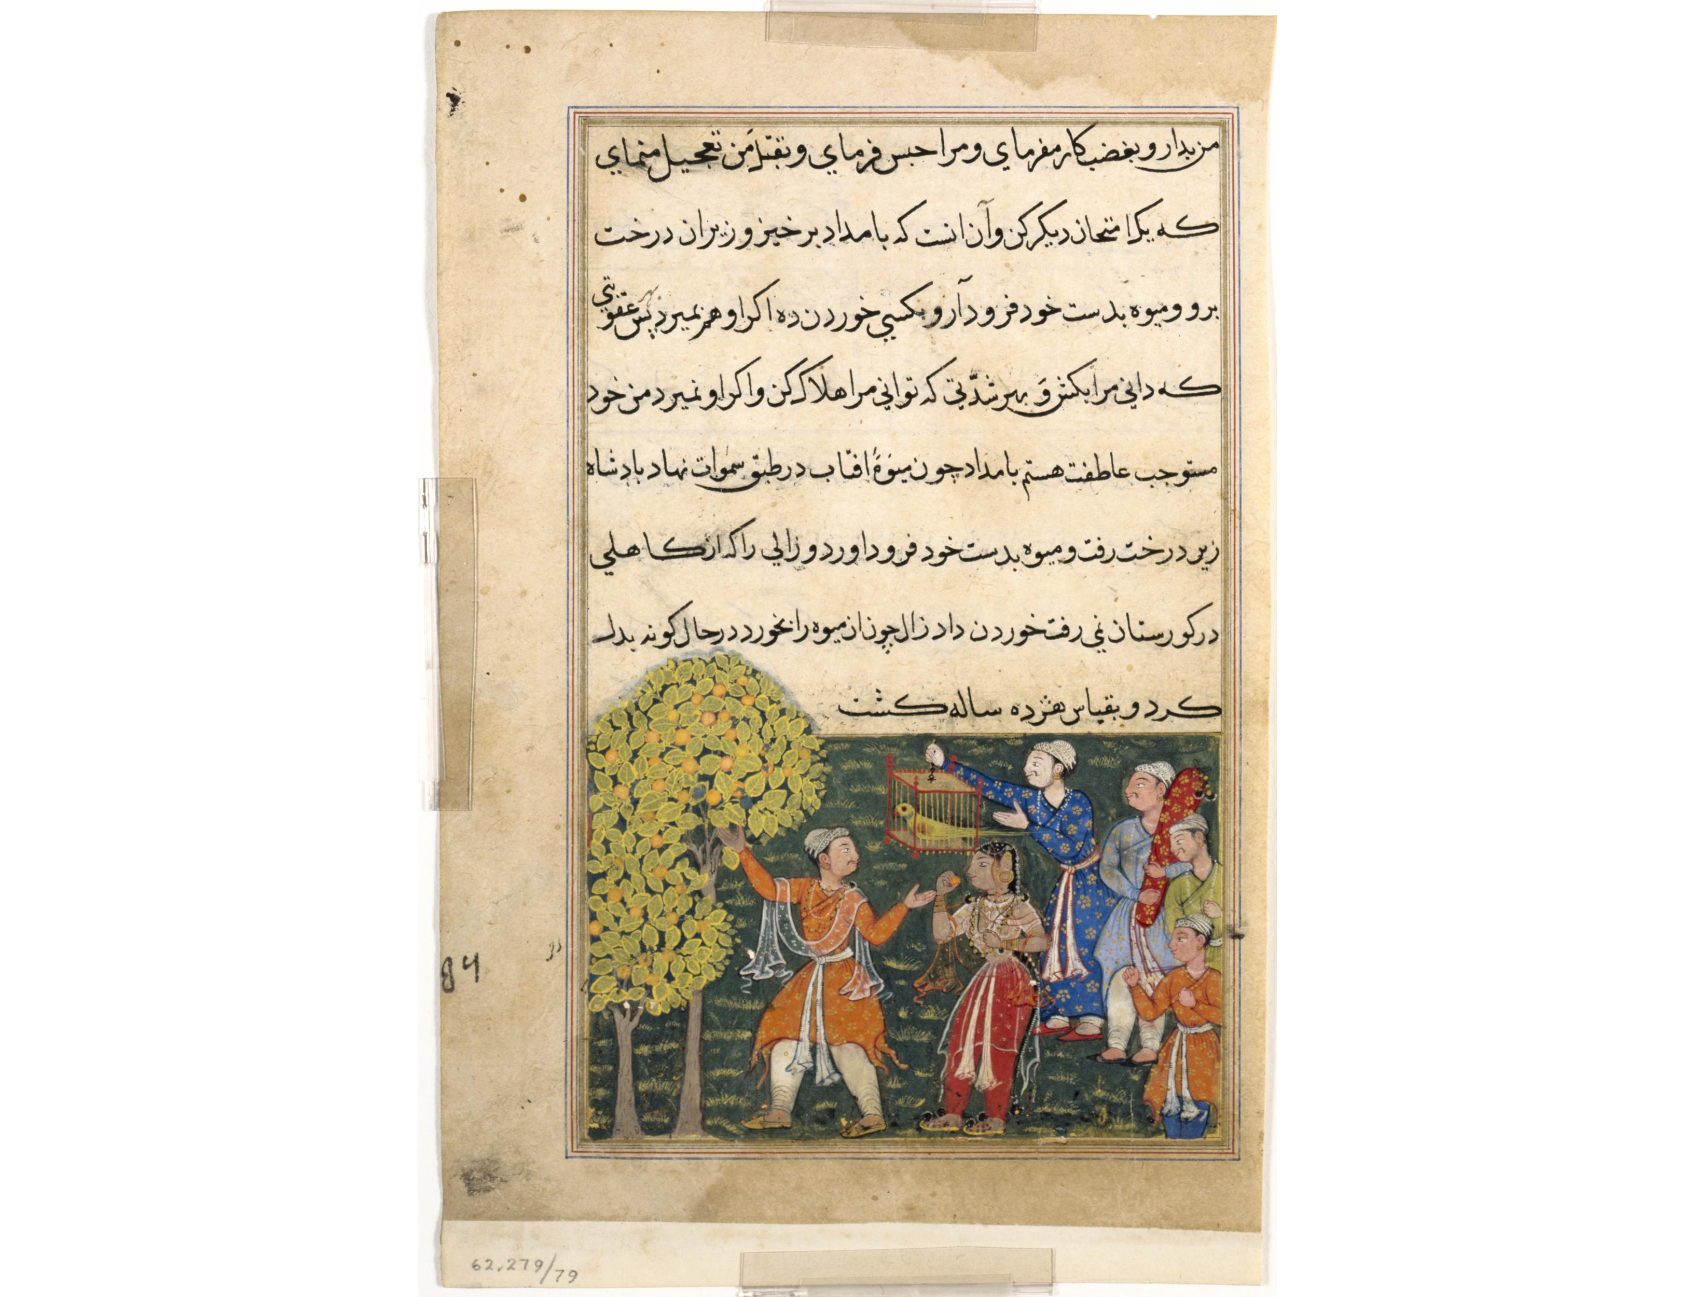 من بدار و بغضب کار مفرمای و مرا حبس فرمای و بقتل من تعجیل منمای
که یک امتحان دیکر کن و آن انست که بامداد برخیز و زیر ان درخت
برو و میوه بدست خود فرود آر و بکسی خوردن ده اکر او هم بمیرد پس بهر عقوبتی
که دانی مرا بکش و بهر شدّتی که توانی مرا هلاک کن و اکر او نمیرد من خود
مستوجب عاطفت هستم بامداد چون میوهٔ افتاب در طبق سموات نهاد بادشاه
زیر درخت رفت و میوه بدست خود فرود اورد و زالی را که از کاهلی
در کورستان نمی رفت خوردن داد زال چون ان میوه را بخورد در حال کونه بدل
کرد و بقیاس هژده ساله کشت
62.279/79